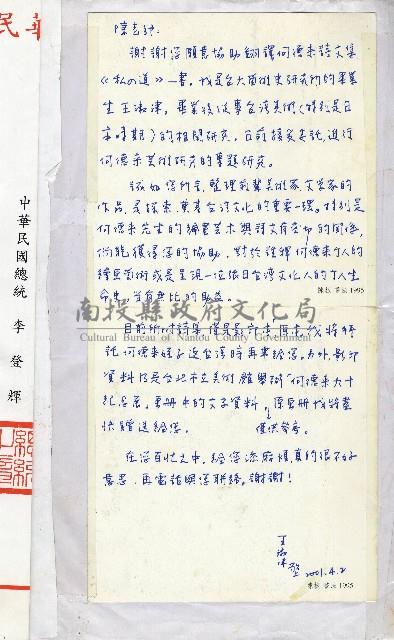 陳老師：
謝謝您願意協助翻譯何德來詩文集
《私の道》一書，我是台大藝術史研究所的畢業
生王淑津，畢業後從事台灣美術（特別是日
本時期）的相關研究，目前接受委託，進行
何德來美術研究的專題研究。
誠如您所言，整理前輩美術家、文學家的
作品，是探索、奠基台灣文化的重要一環。特別是
何德來先生的繪畫藝術與詩文有密切的關係，
倘能獲得您的協助，對於詮釋何德來个人的
繪畫藝術或是呈現一位旅日台灣文化人的个人生
命史，當有無比的助益。
目前所附詩集僅是影印本，原書我將拜
託何德來姪子返台灣時再帶給您。另外，影印
資料乃是台北市立美術館舉辦何德來九十
紀念展，畫冊中的文字資料，原畫冊我將盡
快贈送給您。僅供參考。
在您百忙之中，給您添麻煩真的很不好
意思，再電話與您聯絡，謝謝！
王淑津 啓 2001.4.2
陳校 藝法 1995
陳校 藝法 1995
中華民國總統 李登輝
華民
南投縣政府文化局
Cultural Bureau of Nantou County Government